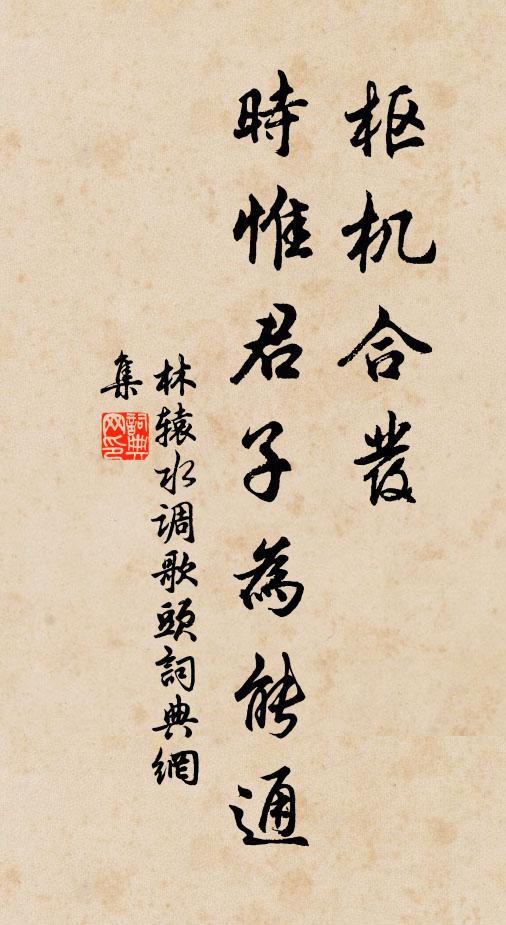 枢机合发
時惟君子為能通
林辕水调歌頭詞典網
集
詞典网印